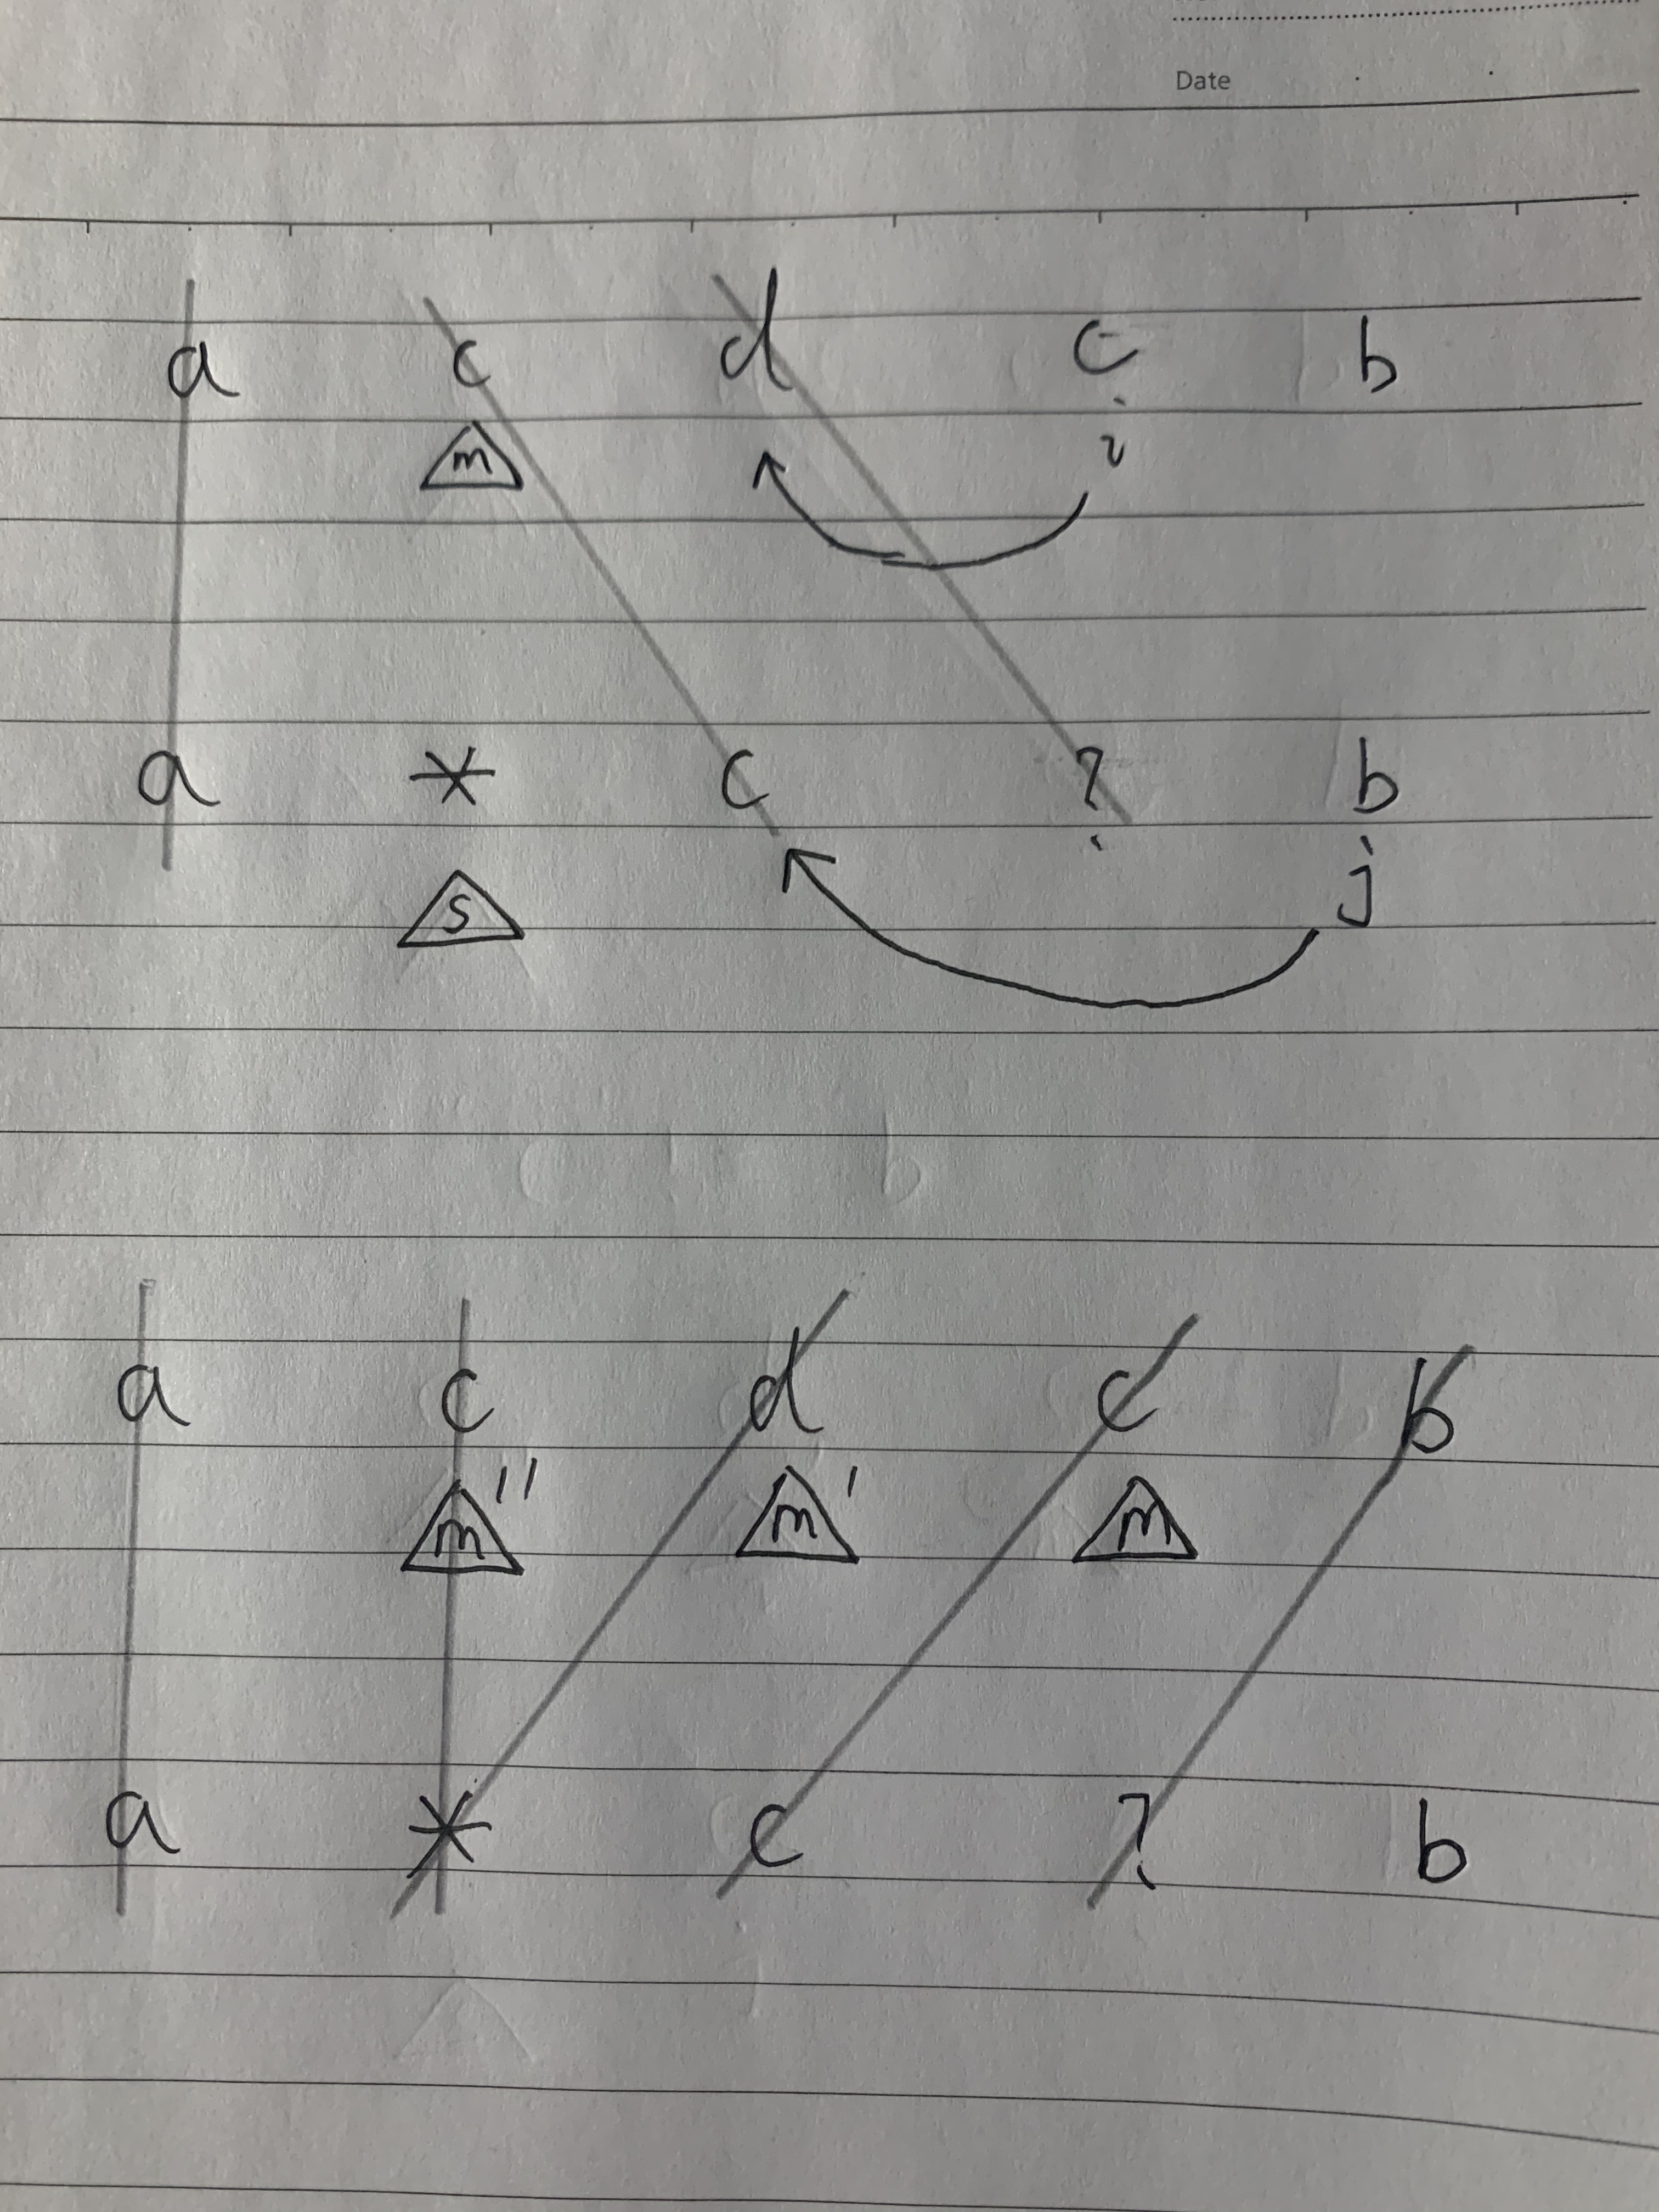 Date
a c d c b
m i
a * c ? b
s j
a c d c b
m'' m' m
a * c ? b